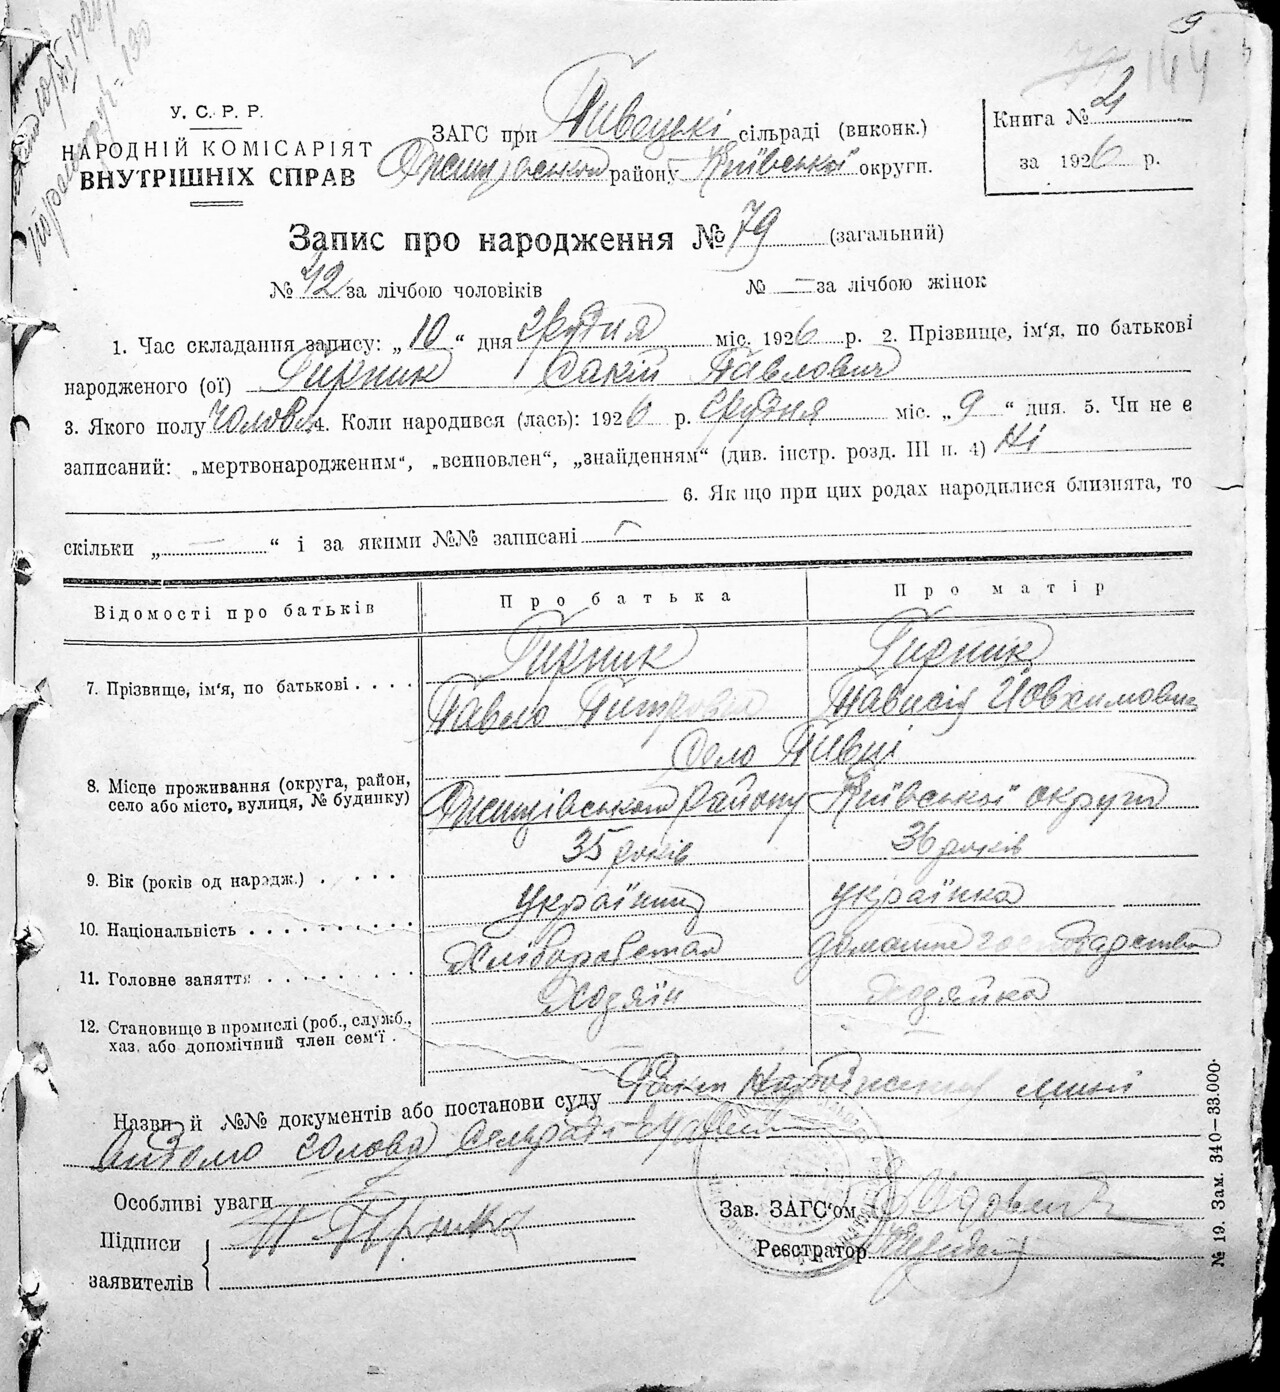 144
У. С. Р. Р.
НАРОДНІЙ КОМІСАРІЯТ
ВНУТРІШНІХ СПРАВ
ЗАГС при Пивецькі сільраді (виконк.)
району Київської округи.
Книга № 2
за 1926 р.
Запис про народження № 79 (загальний)
№ 42 за лічбою чоловіків № — за лічбою жінок
1. Час складання запису: „10“ дня грудня міс. 1926 р. 2. Прізвище, ім'я, по батькові
народженого (ої) Гирник Павлович
3. Якого полу чолов. 4. Коли народився (лась): 1926 р. грудня міс. „9“ дня. 5. Чи не є
записаний: „мертвонародженим“, „всиновлен“, „знайденням“ (див. інстр. розд. III п. 4) Ні
6. Якщо при цих родах народилися близнята, то
скільки „—“ і за якими №№ записані —
Відомості про батьків Про батька Про матір
Гирник Гирник
7. Прізвище, ім'я, по батькові . . . .
Павло Петрович Йовхимовна
село Пивці
8. Місце проживання (округа, район,
село або місто, вулиця, № будинку)
району Київської округи
35 років 36 років
9. Вік (років од нарздж.) . . . . .
українець українка
10. Національність . . . . . . . . . .
Хліборобством домашнє господарство
11. Головне заняття . . . . . . .
Хозяїн хозяйка
12. Становище в промислі (роб., служб.,
хаз. або допомічний член сем'ї .
Назви й №№ документів або постанови суду Факт народження мині
відомо голова сельради
Особливі уваги
Підписи
заявителів
Зав. ЗАГС'ом
Реєстратор
№ 19. Зам. 340—33.000.